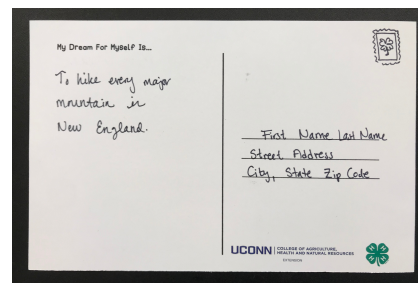 My Dream For Myself Is...
To hike every major
mountain in
New England.
First Name Last Name
Street Address
City, State Zip Code
UCONN
COLLEGE OF AGRICULTURE,
HEALTH AND NATURAL RESOURCES
EXTENSION
H H
H H